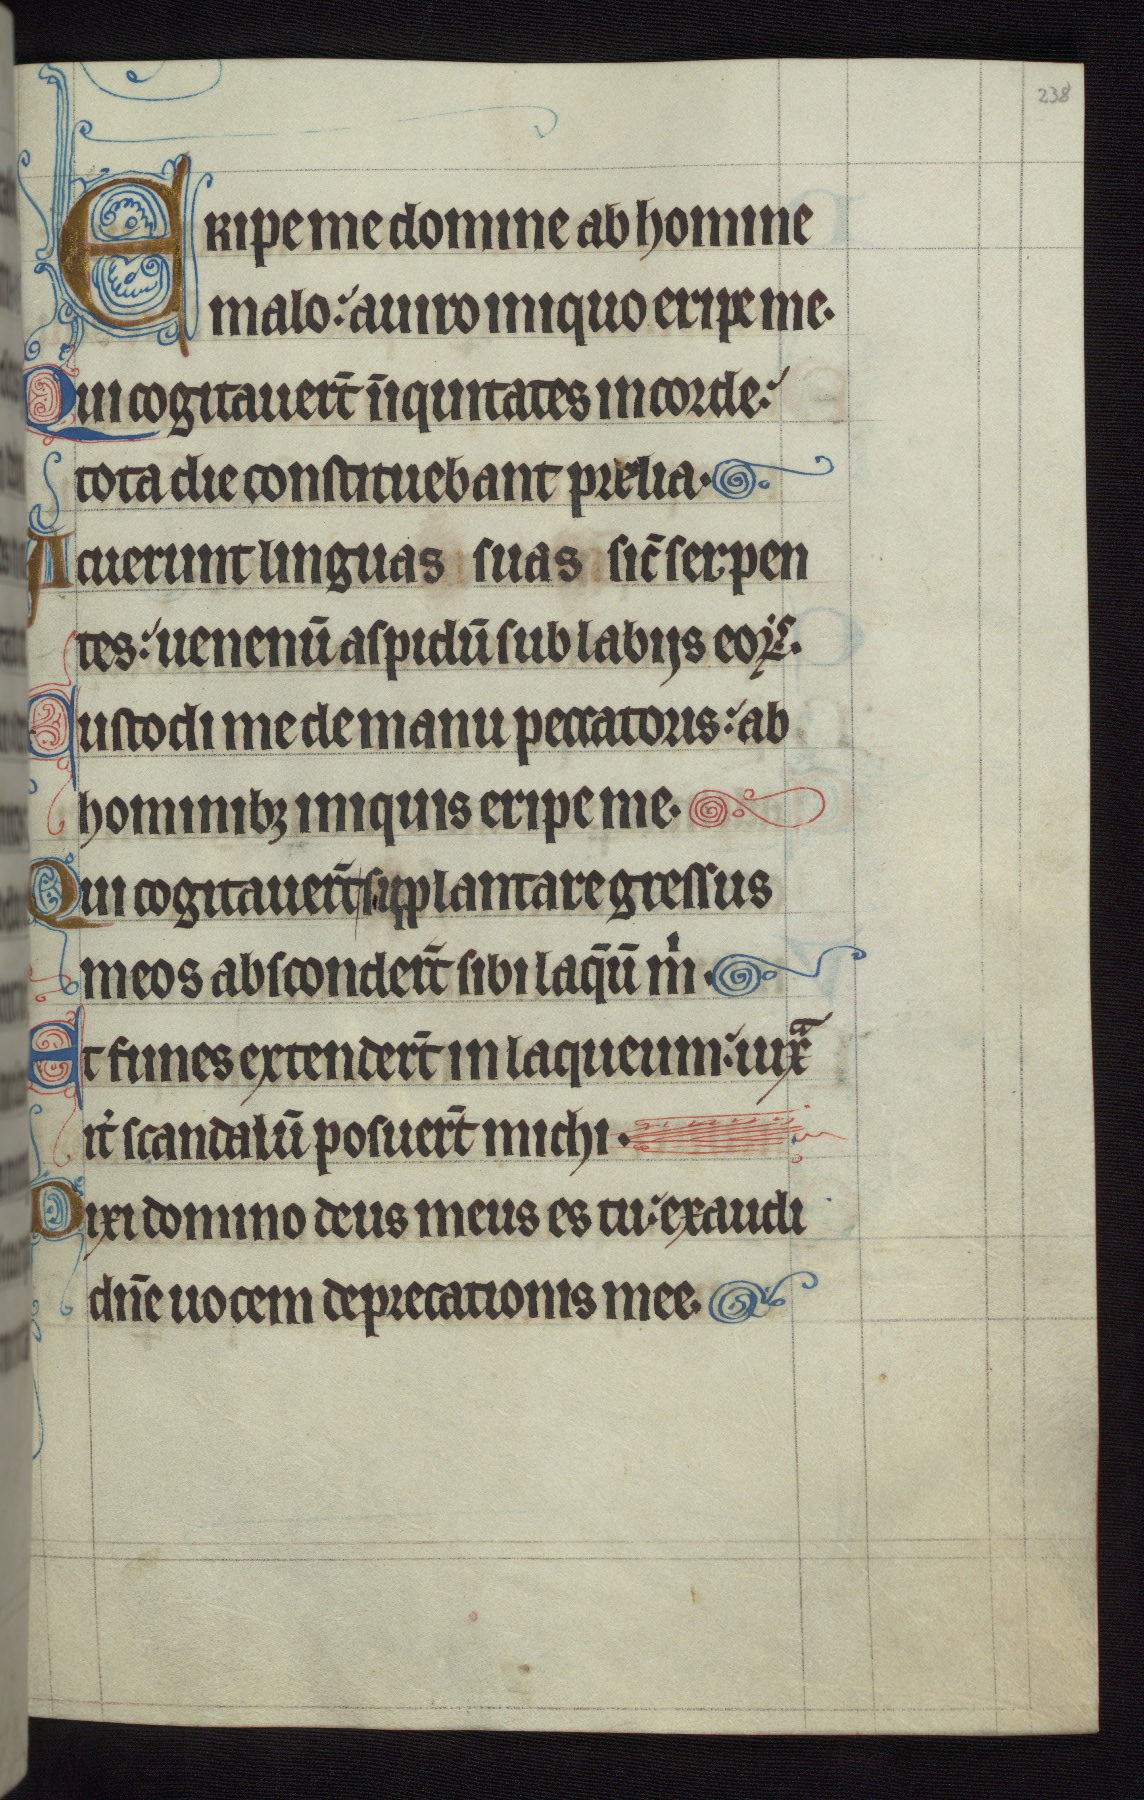 238
Eripe me domine ab homine
malo: a uiro iniquo eripe me.
Qui cogitauer̄t iīquitates in corde:
tota die constituebant prelia.
Acuerunt linguas suas sic̄ serpen
tes: uenenū aspidū sub labijs eoꝝ.
Custodi me de manu peccatoris: ab
hominibꝫ iniquis eripe me.
Qui cogitauer̄t supplantare gressus
meos absconder̄t sibi laq̄ū m̍.
Et funes extender̄t in laqueum: iuxᵃ
it̍ scandalū posuer̄t michi.
Dixi domino deus meus es tu: exaudi
dn̄e uocem deprecationis mee.